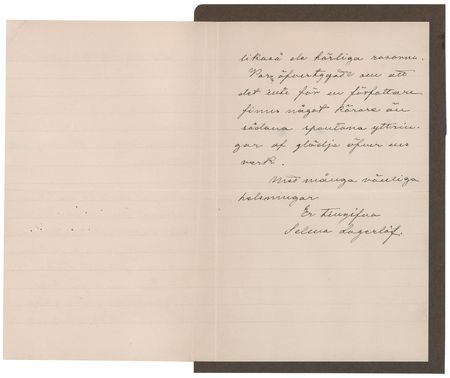 likaså de härliga rosorna.
Var öfvertygad om att
det inte för en författare
finns något kärare än
sådana spontana yttrin-
gar af glädje öfver ens
verk.
Med många vänliga
helsningar
Er tillgifna
Selma Lagerlöf.